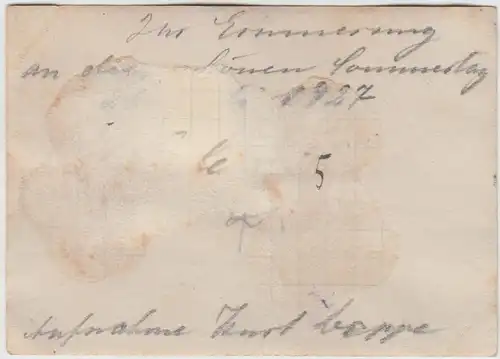 Zur Erinnerung
an den schönen Sommertag
1927
5
Aufnahme Kurt